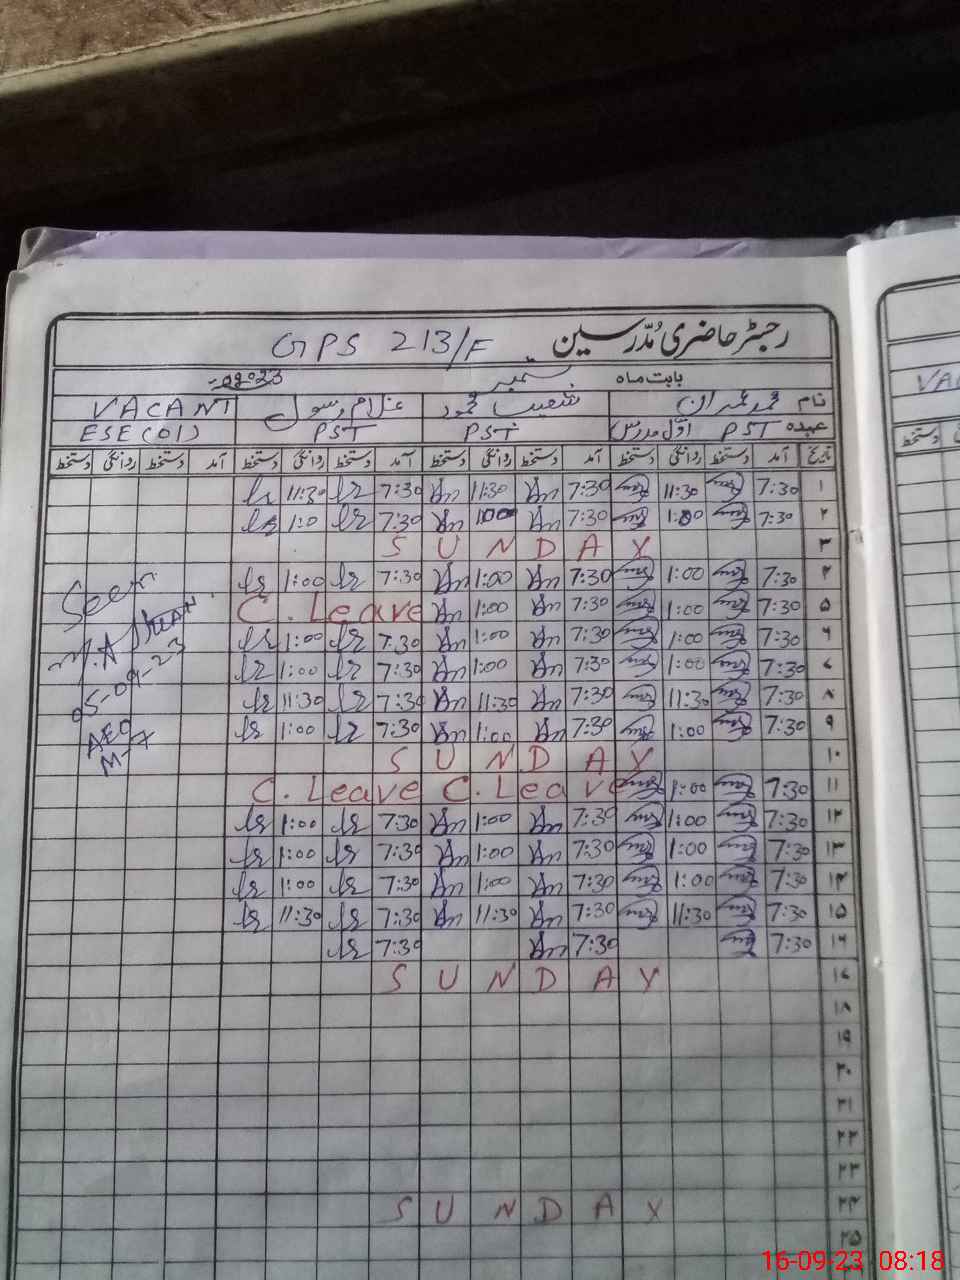 GPS 213/F رجسٹر حاضری مدرسین
بابت ماہ ستمبر 2023-09
نام محمد عمران شعیب محمود غلام رسول VACANT
عہدہ PST اوّل مدرس PST PST ESE (01)
تاریخ آمد دستخط روانگی دستخط آمد دستخط روانگی دستخط آمد دستخط روانگی دستخط آمد دستخط روانگی دستخط
۱ 7:30 11:30 7:30 11:30 7:30 11:30
۲ 7:30 1:00 7:30 1:00 7:30 1:0
۳ S U N D A Y
۴ 7:30 1:00 7:30 1:00 7:30 1:00
۵ 7:30 1:00 7:30 1:00 C. Leave
۶ 7:30 1:00 7:30 1:00 7:30 1:00
۷ 7:30 1:00 7:30 1:00 7:30 1:00
۸ 7:30 11:30 7:30 11:30 7:30 11:30
۹ 7:30 1:00 7:30 1:00 7:30 1:00
۱۰ S U N D A Y
۱۱ 7:30 1:00 C. Leave C. Leave
۱۲ 7:30 1:00 7:30 1:00 7:30 1:00
۱۳ 7:30 1:00 7:30 1:00 7:30 1:00
۱۴ 7:30 1:00 7:30 1:00 7:30 1:00
۱۵ 7:30 11:30 7:30 11:30 7:30 11:30
۱۶ 7:30 7:30 7:30
۱۷ S U N D A Y
۱۸
۱۹
۲۰
۲۱
۲۲
۲۳
۲۴ S U N D A Y
۲۵
Seen
05-09-23
AEO
M-7
16-09-23 08:18